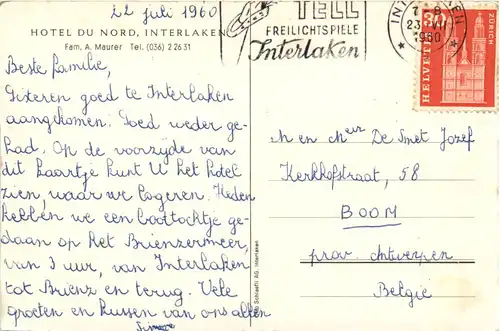 22 juli 1960
HOTEL DU NORD, INTERLAKEN
Fam. A. Maurer Tel. (036) 2 26 31
TELL
FREILICHTSPIELE
Interlaken
INTERLAKEN
7-8
23.VII
1960
30
HELVETIA
ZÜRICH
Beste familie,
Gisteren goed te Interlaken
aangekomen. Goed weder ge-
had. Op de voorzijde van
dit kaartje kunt U het hotel
zien, waar we logeren. Heden
hebben we een boottochtje ge-
daan op het Brienzermeer,
van 3 uur, van Interlaken
tot Brienz en terug. Vele
groeten en kussen van ons allen
Simone
Foto Schlaefli AG, Interlaken
M en Mevr De Smet Jozef
Kerkhofstraat, 58
BOOM
prov. Antwerpen
België